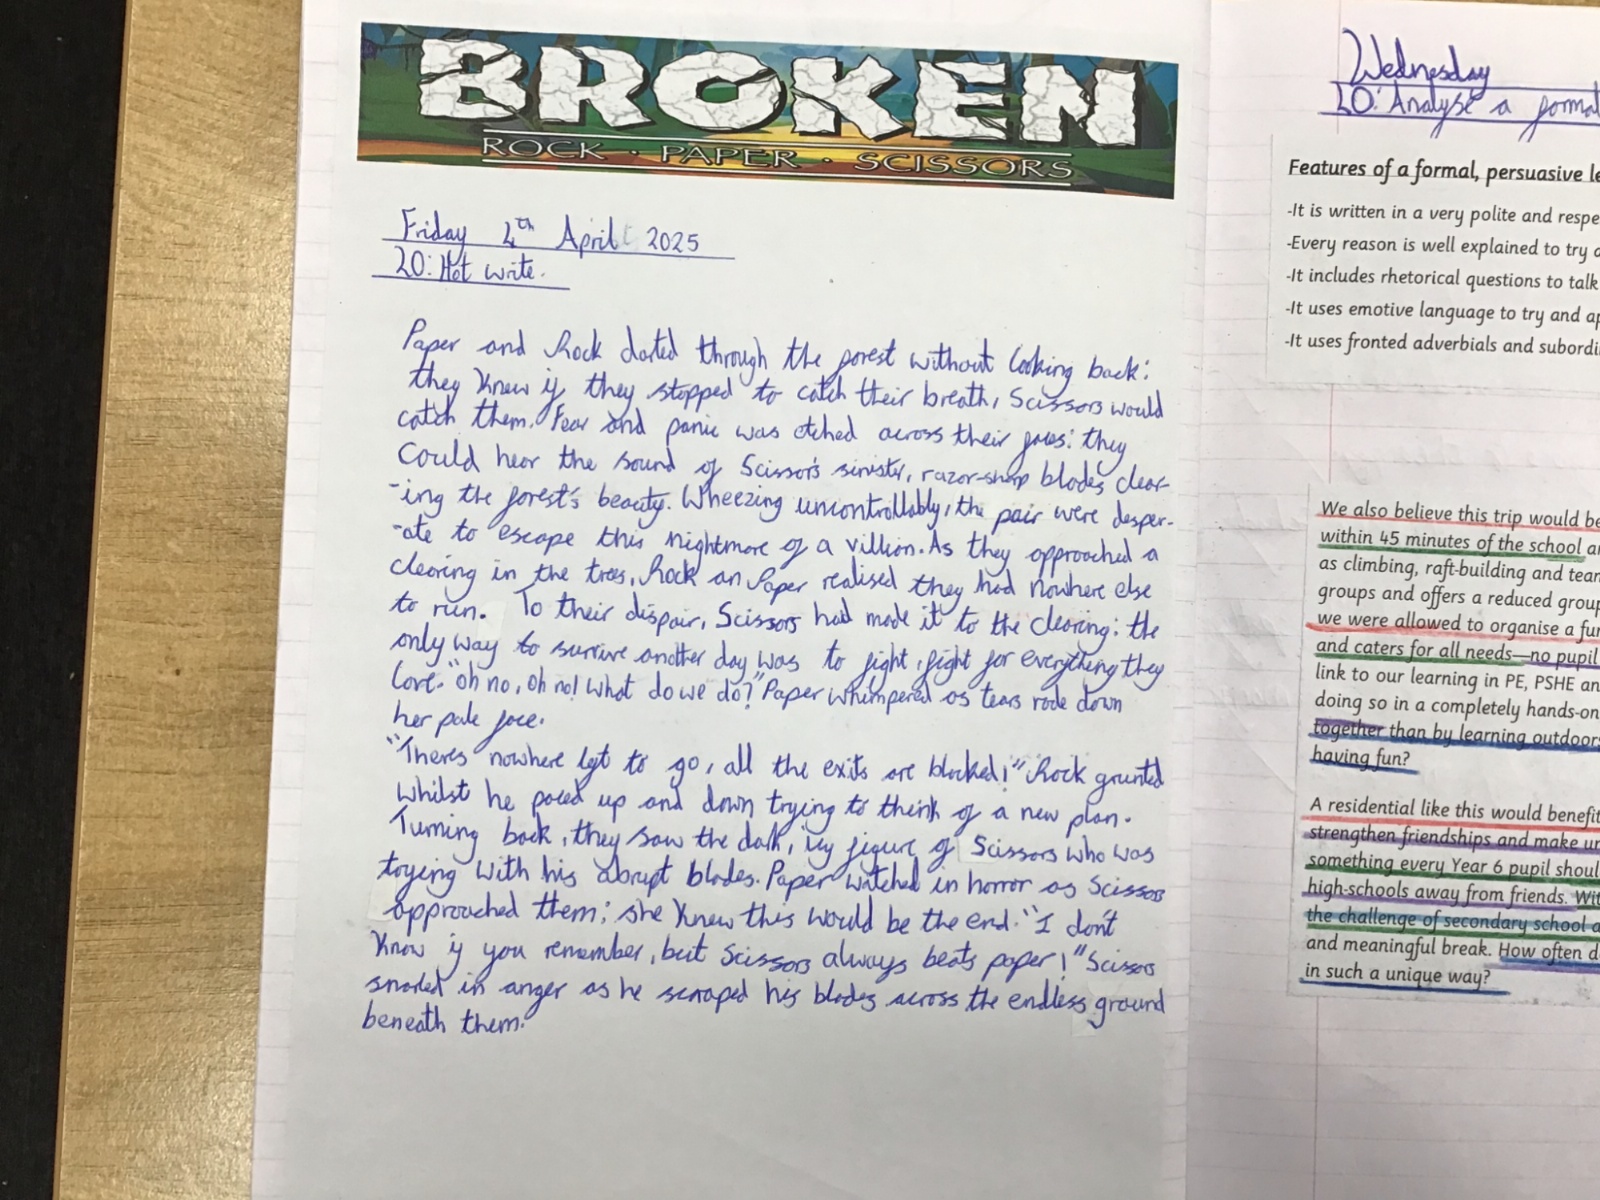 BROKEN
ROCK · PAPER · SCISSORS
Friday 4th April 2025
LO: Hot write.
Paper and Rock darted through the forest without looking back:
they knew if they stopped to catch their breath, Scissors would
catch them. Fear and panic was etched across their faces: they
could hear the sound of Scissor's sinister, razor-sharp blades clear-
-ing the forest's beauty. Wheezing uncontrollably, the pair were desper-
-ate to escape this nightmare of a villion. As they approached a
clearing in the trees, Rock an Paper realised they had nowhere else
to run. To their dispair, Scissors had made it to the clearing: the
only way to survive another day was to fight, fight for everything they
love. "Oh no, Oh no! What do we do?" Paper whimpered as tears rode down
her pale face.
"Theres nowhere left to go, all the exits are blocked!" Rock grunted
whilst he paced up and down trying to think of a new plan.
Turning back, they saw the dark, icy figure of Scissors who was
toying with his abrupt blades. Paper watched in horror as Scissors
approached them; she knew this would be the end. "I don't
know if you remember, but Scissors always beats paper!" Scissors
snarled in anger as he scraped his blades across the endless ground
beneath them.
Wednesday
LO: Analyse a formal
Features of a formal, persuasive le
-It is written in a very polite and respe
-Every reason is well explained to try
-It includes rhetorical questions to talk
-It uses emotive language to try and ap
-It uses fronted adverbials and subordi
We also believe this trip would be
within 45 minutes of the school an
as climbing, raft-building and team
groups and offers a reduced group
we were allowed to organise a fun
and caters for all needs—no pupil
link to our learning in PE, PSHE an
doing so in a completely hands-on
together than by learning outdoors
having fun?
A residential like this would benefit
strengthen friendships and make un
something every Year 6 pupil shoul
high-schools away from friends. Wit
the challenge of secondary school a
and meaningful break. How often d
in such a unique way?